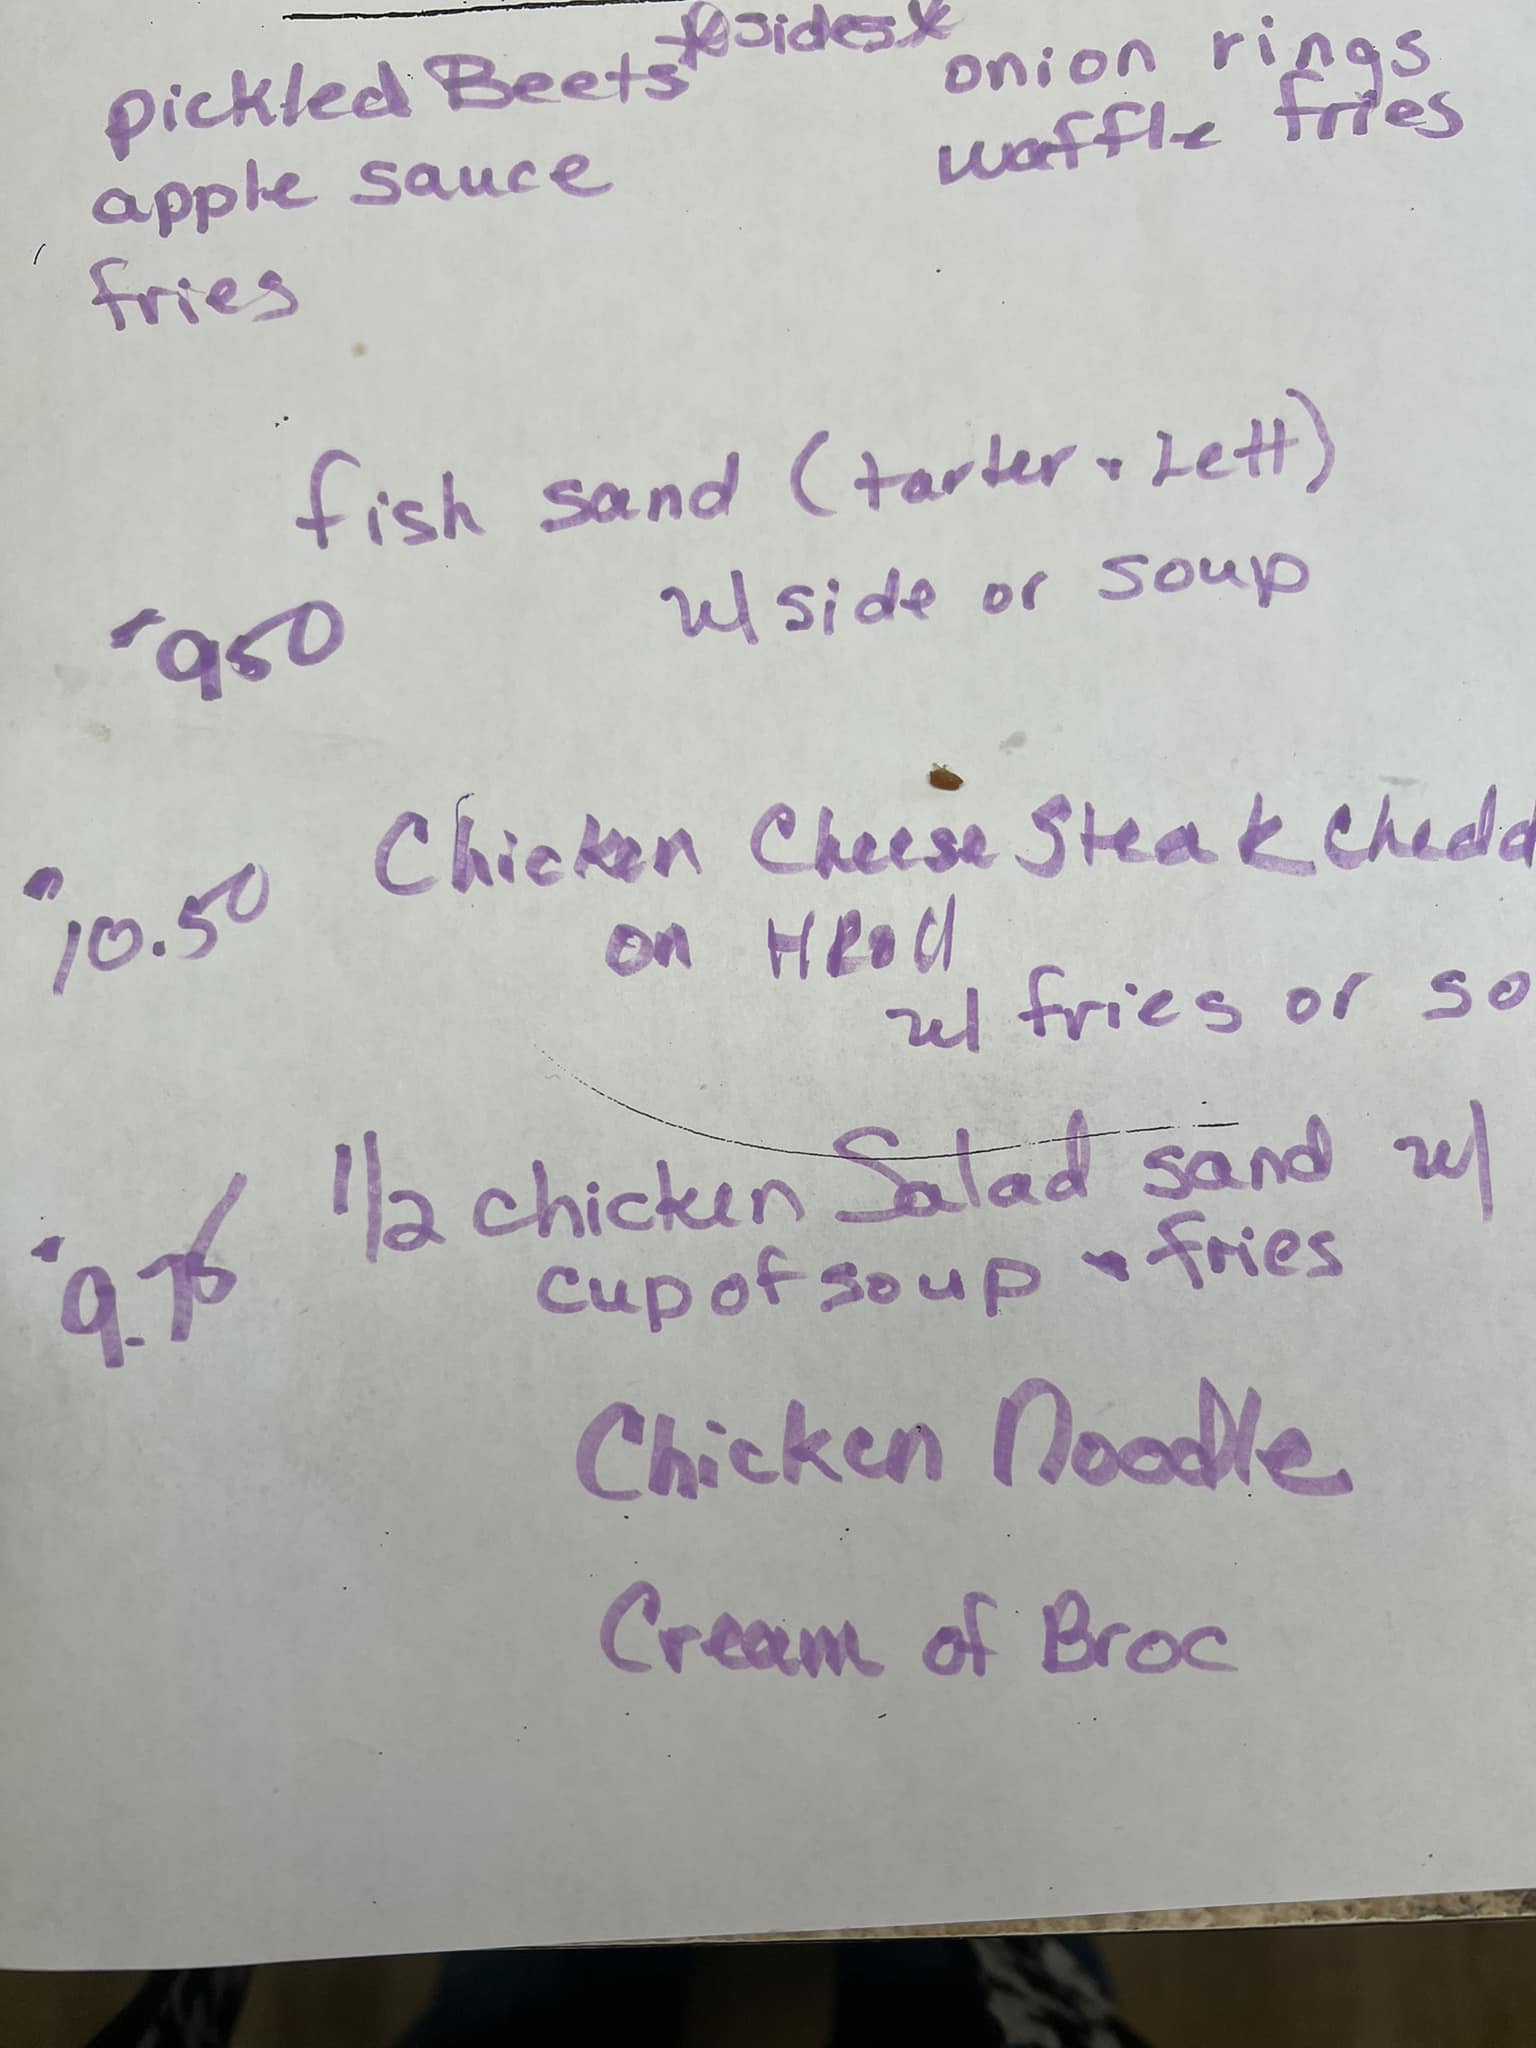 *Sides*
pickled Beets
apple sauce
fries
onion rings
waffle fries
fish sand (tarter + Lett)
w/ side or soup
950
Chicken Cheese Steak Chedd
on HRoll
w/ fries or so
10.50
1/2 chicken Salad sand w/
cup of soup + fries
9.75
Chicken Noodle
Cream of Broc